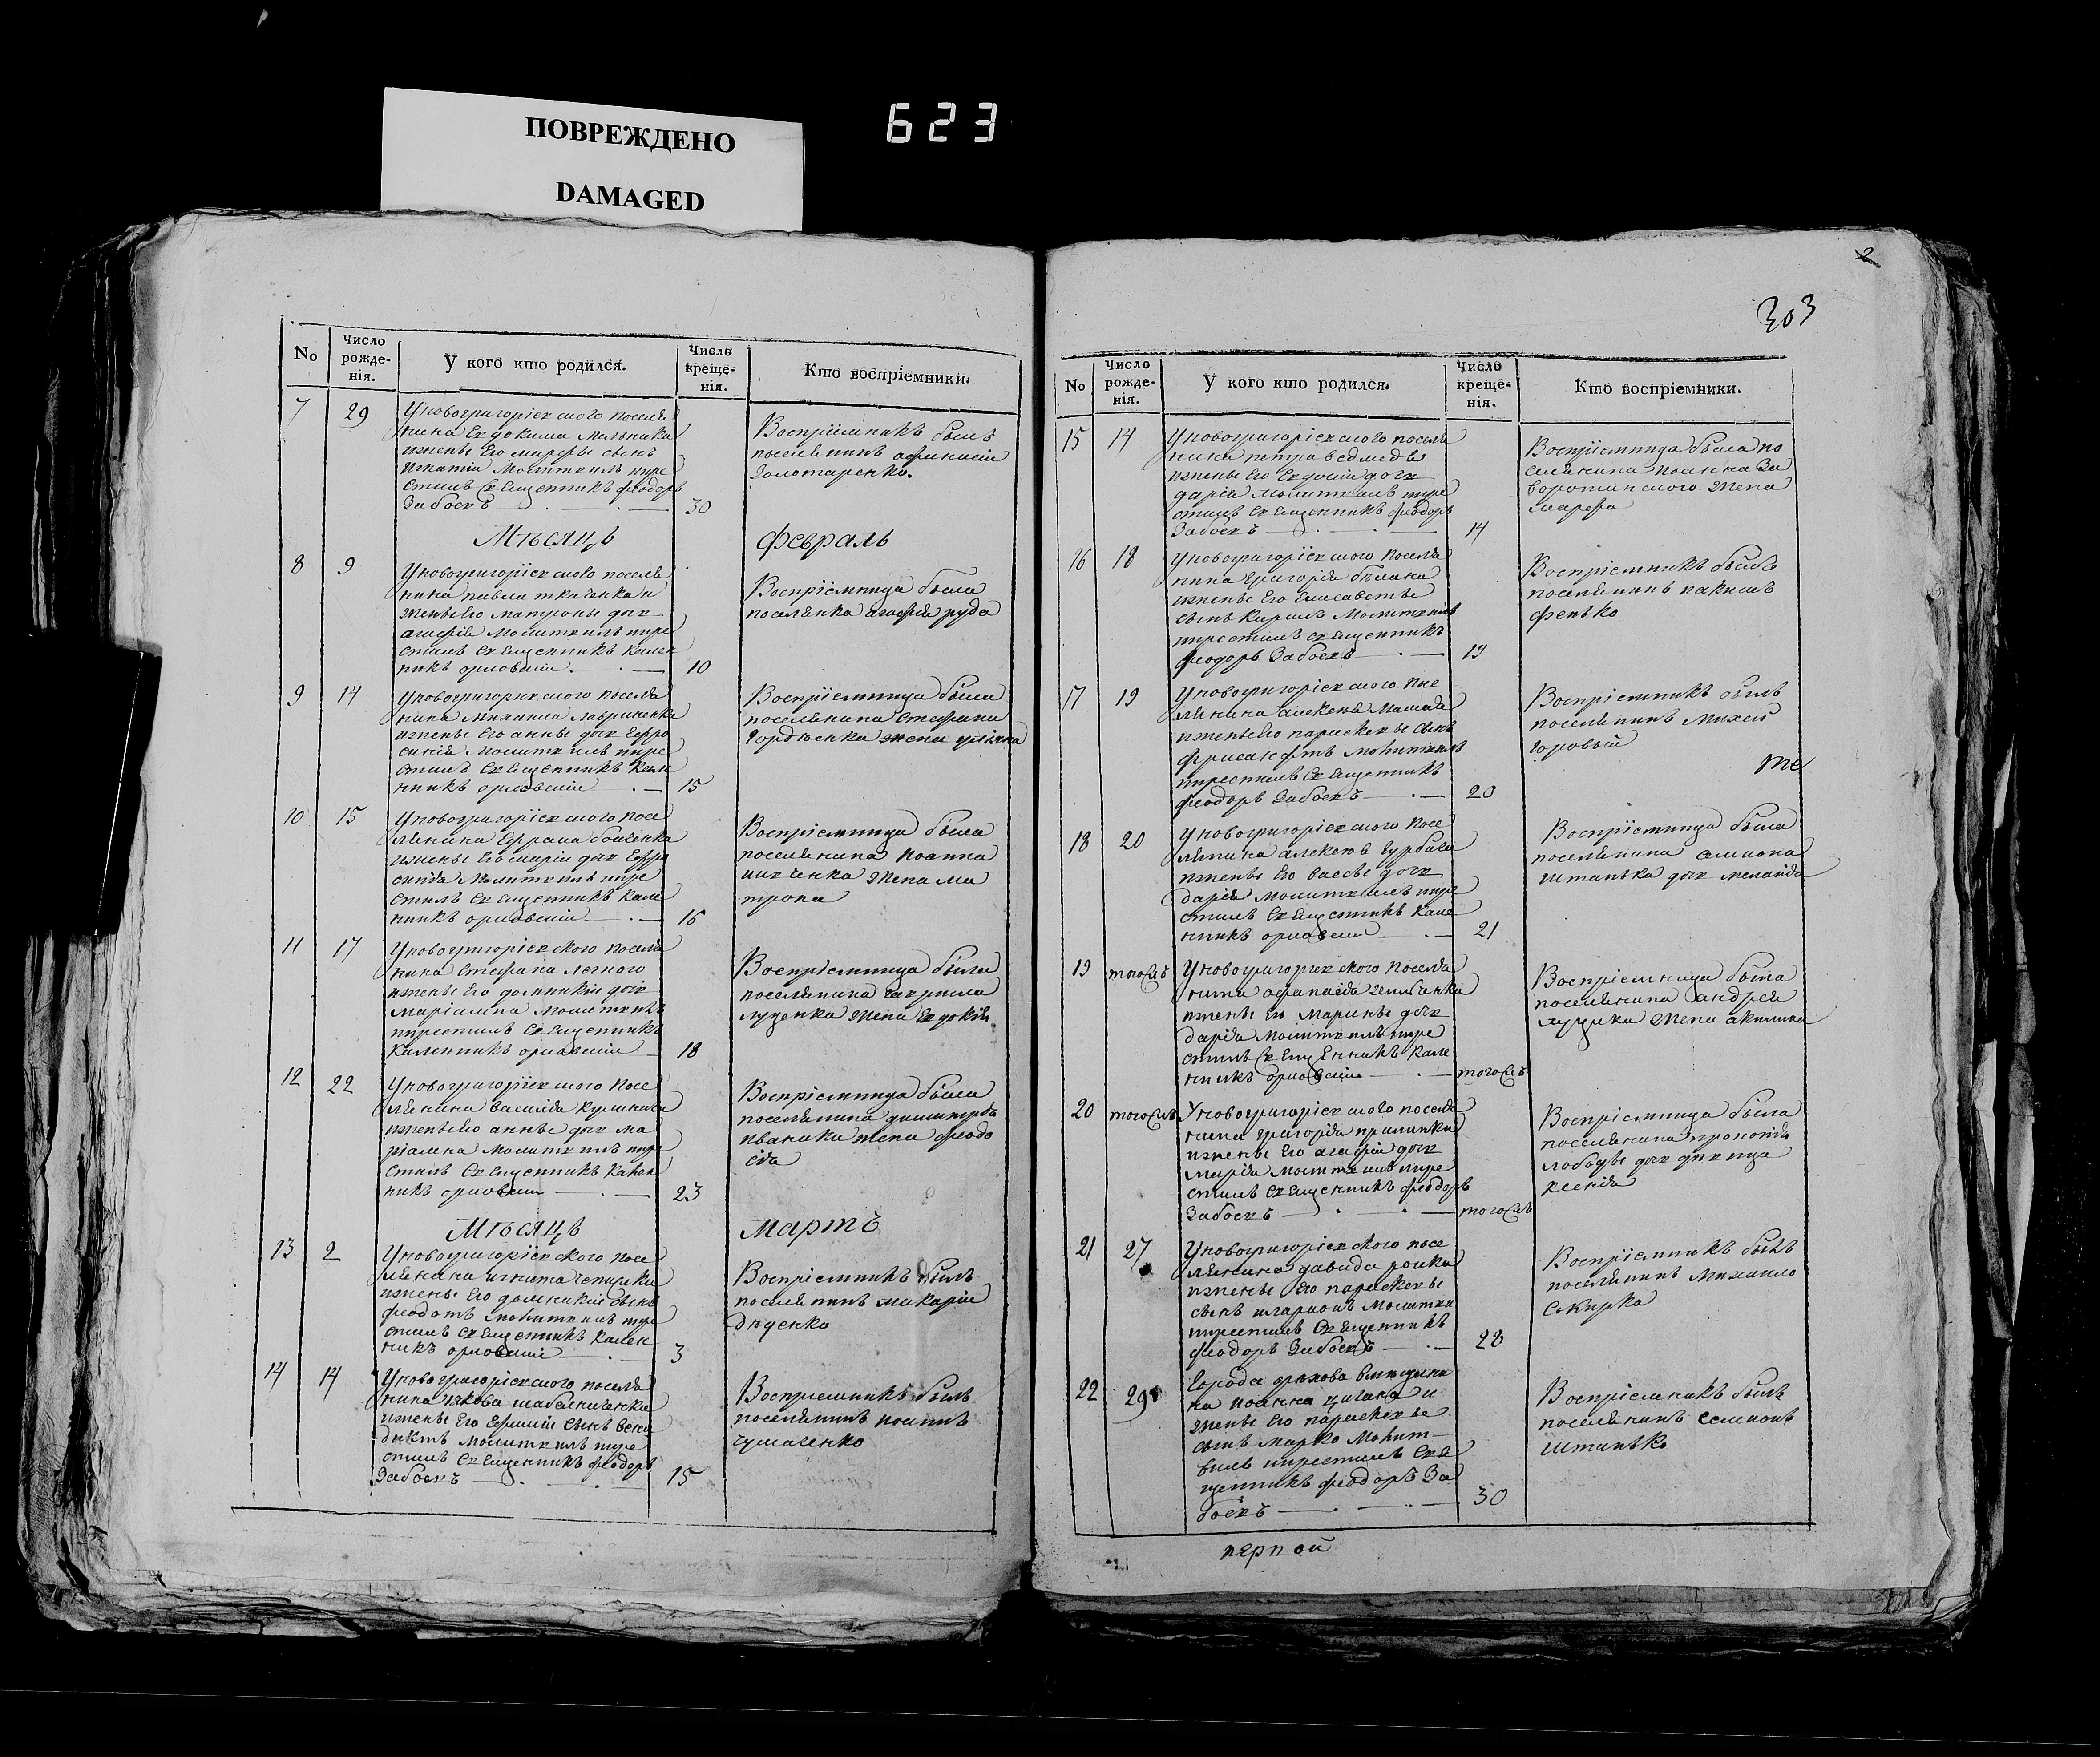 ПОВРЕЖДЕНО
DAMAGED
623
2
303
No
Число рожде-нія.
У кого кто родился.
Число креще-нія.
Кто воспріемники.
7
29
Уновогригоріевского поселя
нина Евдокима Мельника
ижены Его марфы сынъ
Игнатій Молитвилъ икре
стилъ Священникъ феодоръ
Забоевъ
30
Воспріемникъ былъ
поселянинъ афанасій
Золотаренко.
Мѣсяцъ
февраль
8
9
Уновогригоріевского поселя
нина павла ткаченка и
жены Его матроны дочь
агафія Молитвилъ икре
стилъ Священникъ Кали
никъ орловскій
10
Воспріемница была
поселянка агафія руда
9
14
Уновогригориевского поселя
нина михаила лавриненка
ижены Его анны дочь Ефро
синія Молитвилъ икре
стилъ Священникъ Кали
никъ орловскій
15
Воспріемница была
поселянина Стефана
Гордіенка жена уліяна
10
15
Уновогригоріевского посе
лянина Ефрама
ижены Его маріи дочь Ефро
синія Молитвилъ икре
стилъ Священникъ Кали
никъ орловскій
16
Воспріемница была
поселянина Иоанна
жена ма
трона
11
17
Уновогригоріевского поселя
нина Стефана легкого
ижены Его домникіи дочь
маріамна Молитвилъ
икрестилъ Священникъ
Калинникъ орловскій
18
Воспріемница была
поселянина гавриила
луценка жена Евдокія
12
22
Уновогригоріевского посе
лянина василія
ижены Его анны дочь ма
ріамна Молитвилъ икре
стилъ Священникъ Кален
никъ орловскій
23
Воспріемница была
поселянина димитрія
иваника жена феодо
сія
Мѣсяцъ
мартъ
13
2
Уновогригоріевского посе
лянина игната
ижены Его домникіи сынъ
феодотъ Молитвилъ икре
стилъ Священникъ Кален
никъ орловскій
3
Воспріемникъ былъ
поселянинъ макарій
дѣденко
14
14
Уновогригоріевского поселя
нина якова
ижены Его Ефиміи сынъ вени
диктъ молитвилъ икре
стилъ Священникъ феодоръ
Забоевъ
15
Воспріемникъ былъ
поселянинъ Иоаннъ
чумаченко
No
Число рожде-нія.
У кого кто родился.
Число креще-нія.
Кто воспріемники.
15
14
Уновогригоріевского поселя
нина петра ведмедя
ижены Его Евдокіи дочь
дарія молитвилъ икре
стилъ Священникъ феодоръ
Забоевъ
14
Воспріемница была по
селянина Иоанна За
воротинского жена
марфа
16
18
Уновогригоріевского поселя
нина григорія бѣлана
ижены Его Елисаветы
сынъ Кирилъ Молитвилъ
икрестилъ священникъ
феодоръ Забоевъ
19
Воспріемникъ былъ
поселянинъ
фенько
17
19
Уновогригоріевского посе
лянина алексея
ижены Его параскевы сынъ
хрисанфъ молитвилъ
икрестилъ Священникъ
феодоръ Забоевъ
20
Воспріемникъ былъ
поселянинъ Михей
горовый
18
20
Уновогригоріевского посе
лянина алексея Гурбича
ижены Его васы дочь
дарія молитвилъ икре
стилъ Священникъ Кале
никъ орловскій
21
Воспріемница была
поселянина симиона
штанька дочь меланія
19
тогожъ
Уновогригориевского поселя
нина афанасія
ижены Его Марины дочь
дарія молитвилъ икре
стилъ Священникъ Кале
никъ орловскій
тогожъ
Воспріемница была
поселянина андрея
луцика жена акилина
20
тогожъ
Уновогригоріевского поселя
нина григорія
ижены Его агафіи дочь
марія молитвилъ икре
стилъ Священникъ феодоръ
Забоевъ
тогожъ
Воспріемница была
поселянина прокопія
лободы дочь дѣвица
ксенія
21
27
Уновогригоріевского посе
лянина давида
ижены Его параскевы
сынъ иларионъ Молитви
икрестилъ Священникъ
феодоръ Забоевъ
28
Воспріемникъ былъ
поселянинъ михаило
Сокирка
22
29
Города орехова
на Иоанна цигана и
жены Его параскевы
сынъ марко Молит
вилъ икрестилъ Свя
щенникъ феодоръ За
боевъ
30
Воспріемникъ былъ
поселянинъ семионъ
штанько